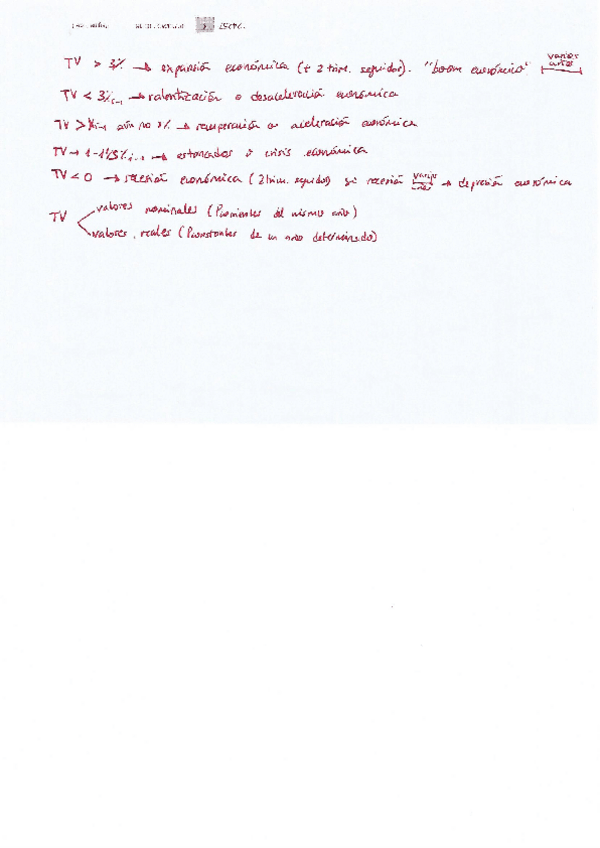 TV > 3% → expansión económica (+ 2 trim. seguidos). "boom económico" varios años
TV < 3% → ralentización o desaceleración económica
TV > aún no 3% → recuperación o aceleración económica
TV → 1 - → estancados o crisis económica
TV < 0 → recesión económica (2 trim. seguidos) si recesión varios años → depresión económica
TV
valores nominales (Pcorrientes del mismo año)
valores reales (Pconstantes de un año determinado)